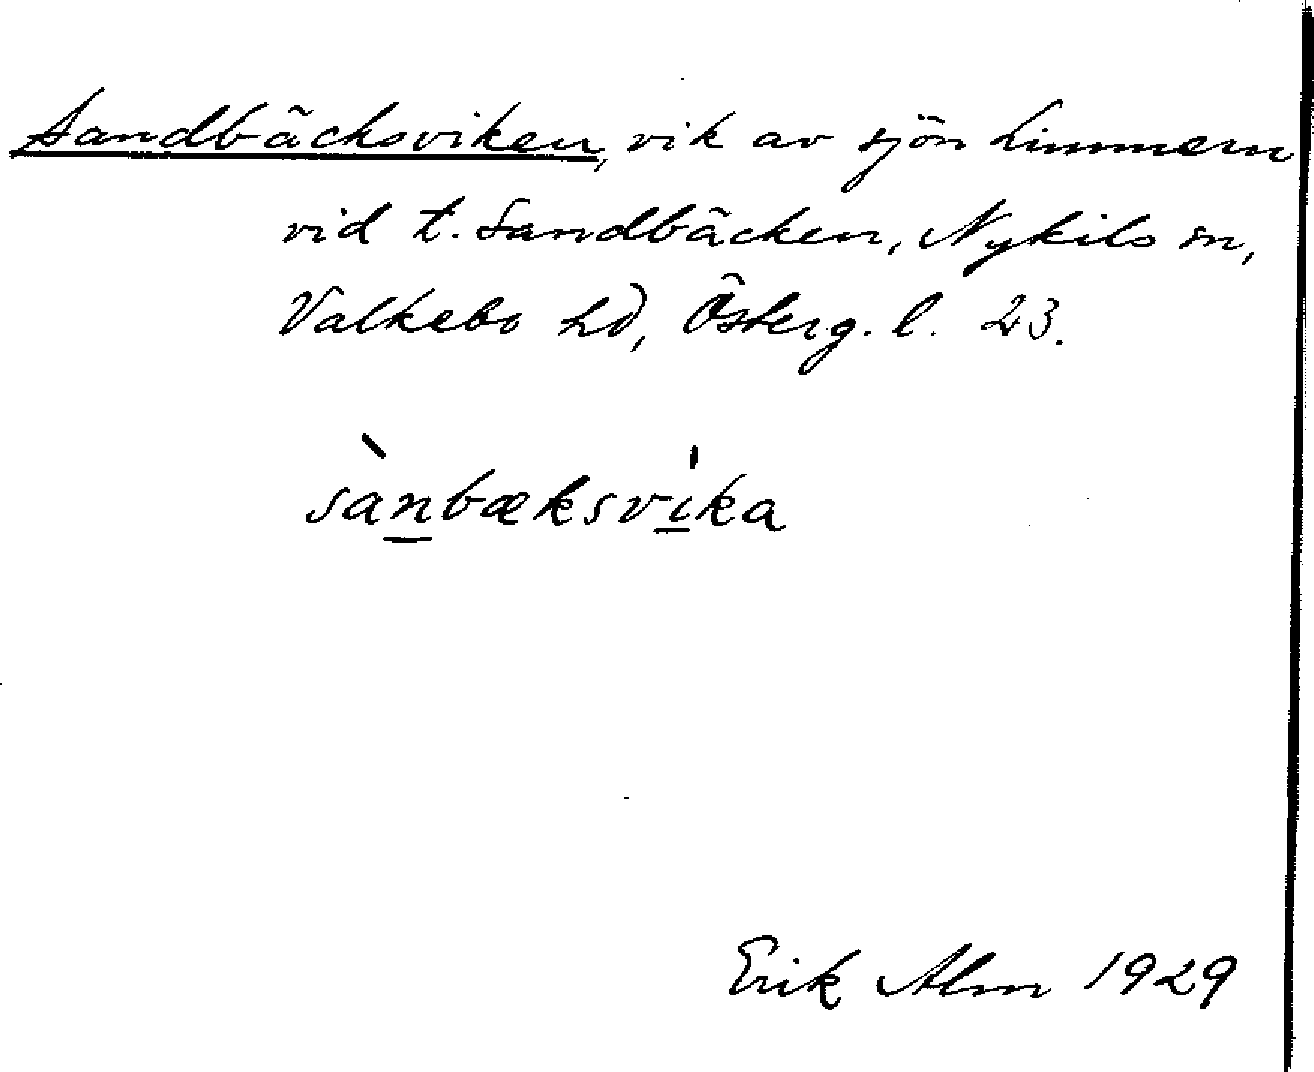 Sandbäcksviken, vik av sjön Limmern
vid t. Sandbäcken, Nykils sn,
Valkebo hd, Österg. l. 23.
sànbæksvíka
Erik Alm 1929